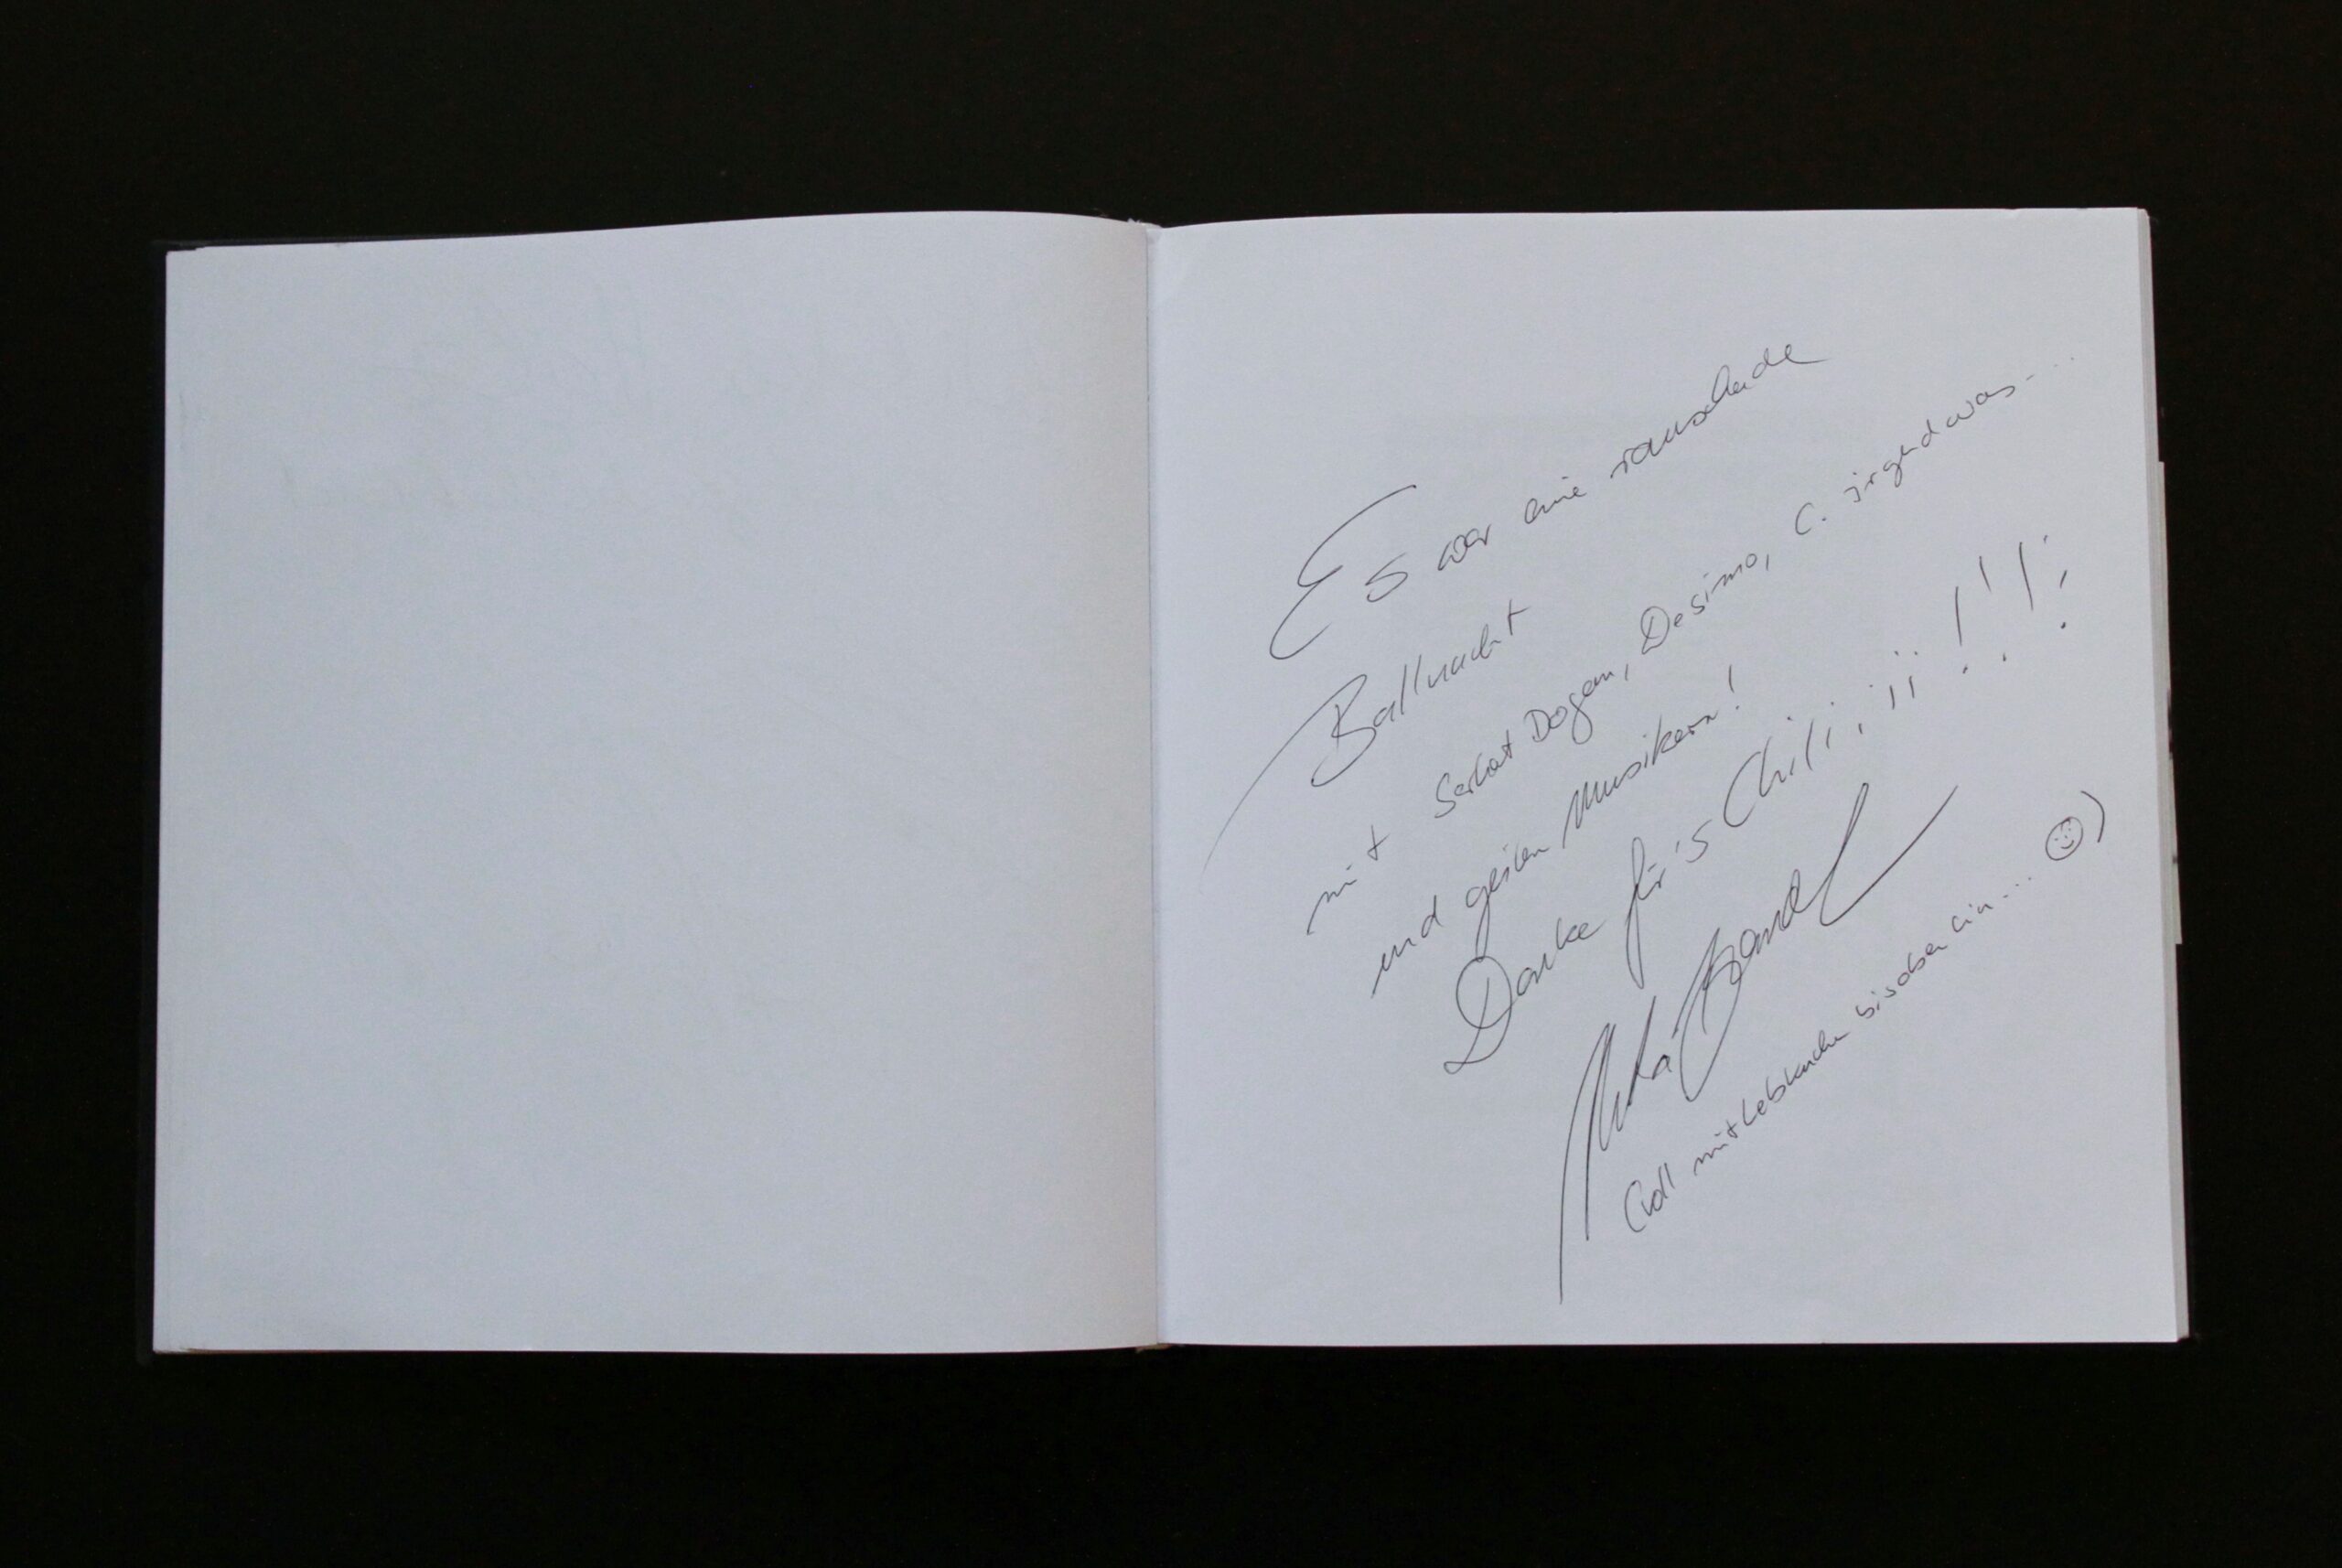 Es war eine rauschende
Ballnacht
mit Serhat Dogan, Desimo, C. irgendwas...
und geilen Musikern!
Danke für's Chili,iii!!!!
(voll mit Lebkuchen bis oben hin... ☺)